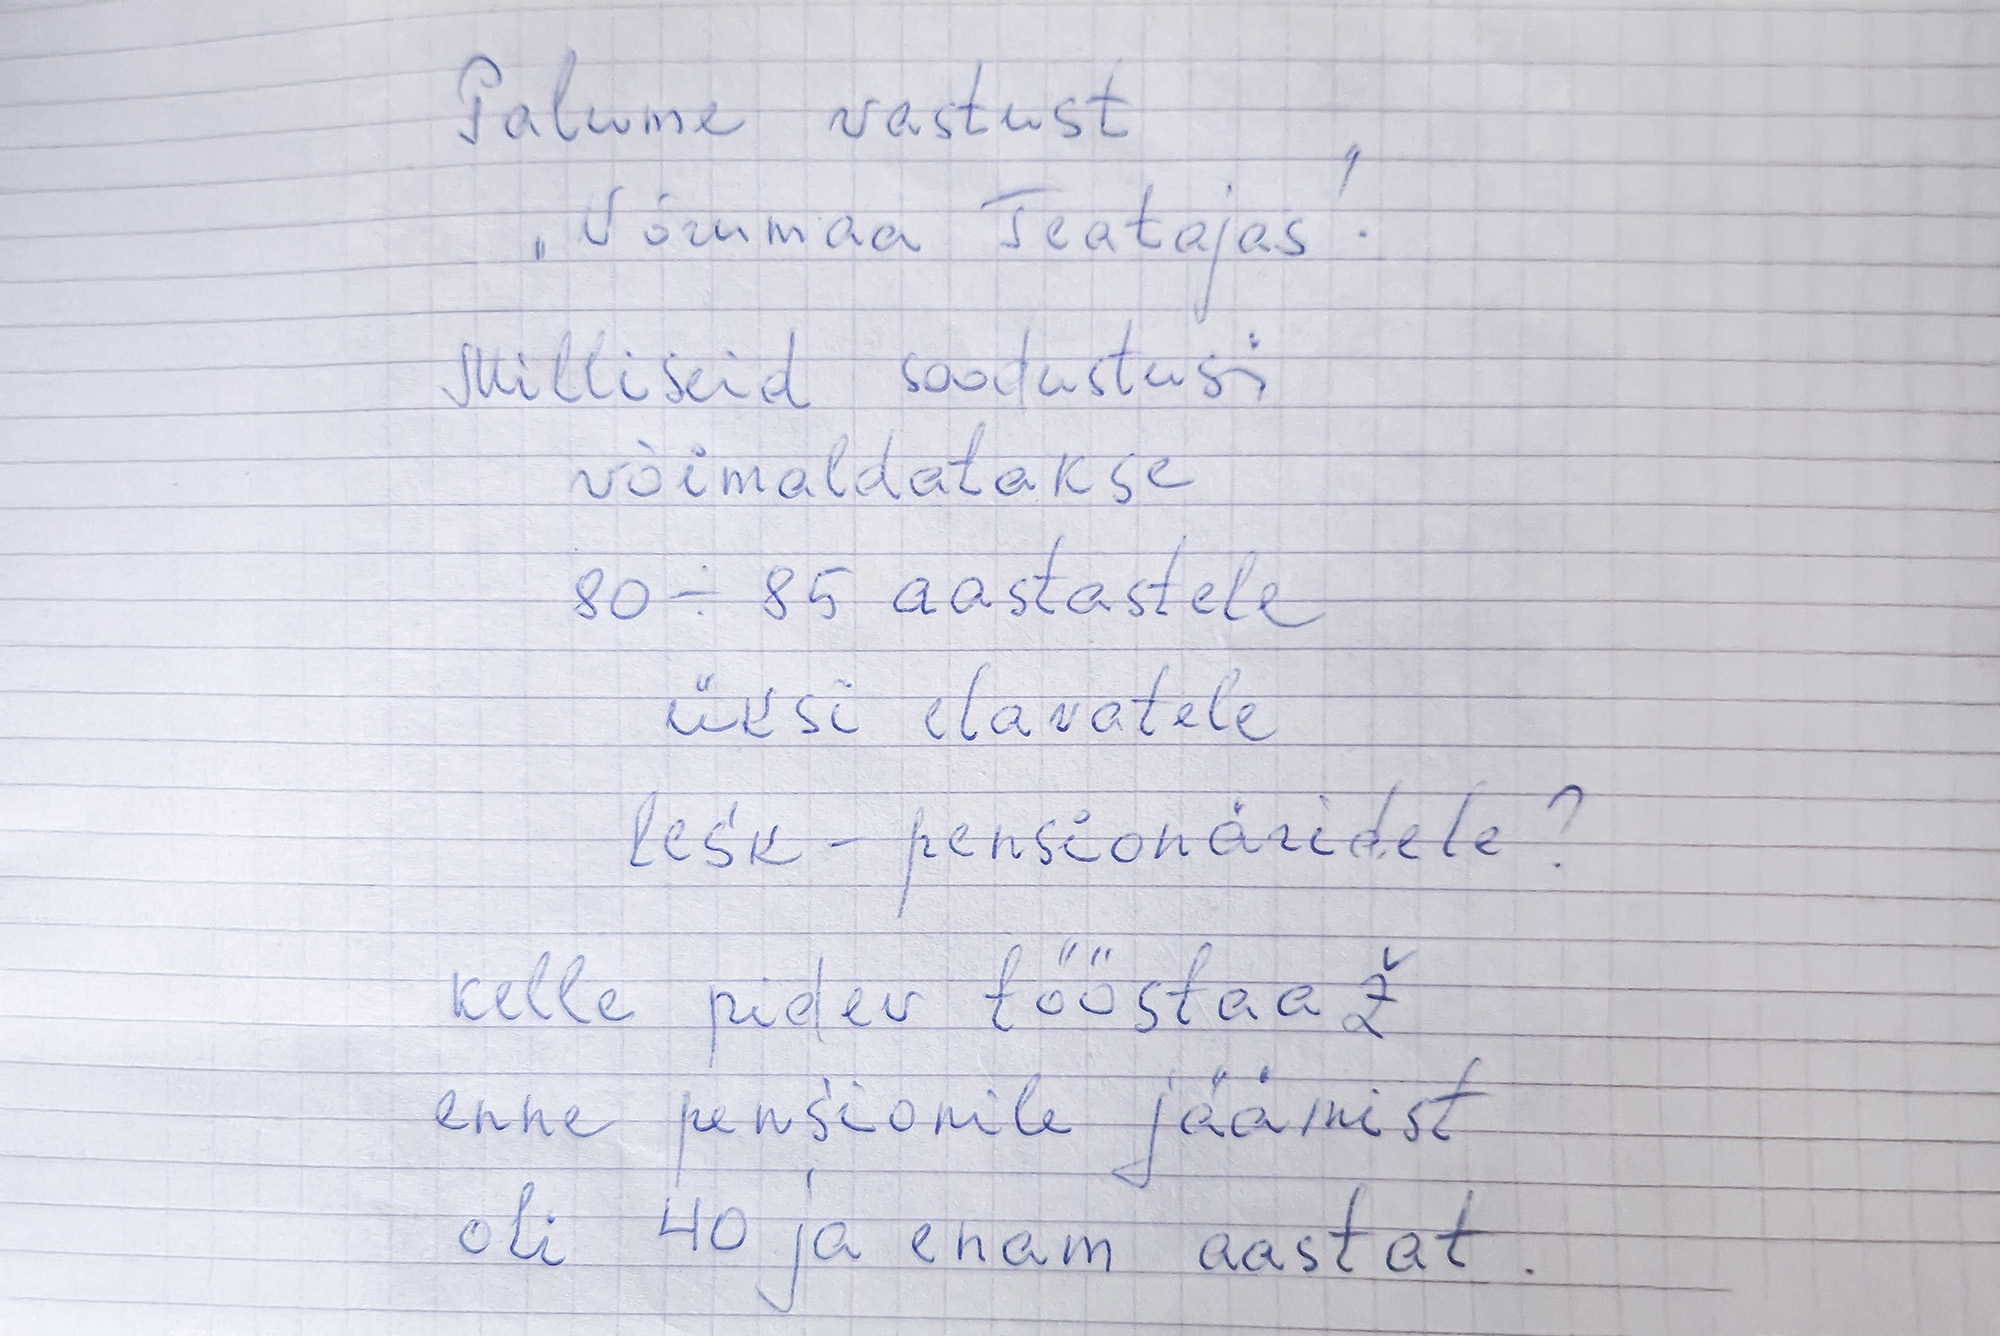 Palume vastust
„Võrumaa Teatajas".
Milliseid soodustusi
võimaldatakse
80÷85 aastastele
üksi elavatele
lesk-pensionäridele?
kelle pidev tööstaaž
enne pensionile jäämist
oli 40 ja enam aastat.